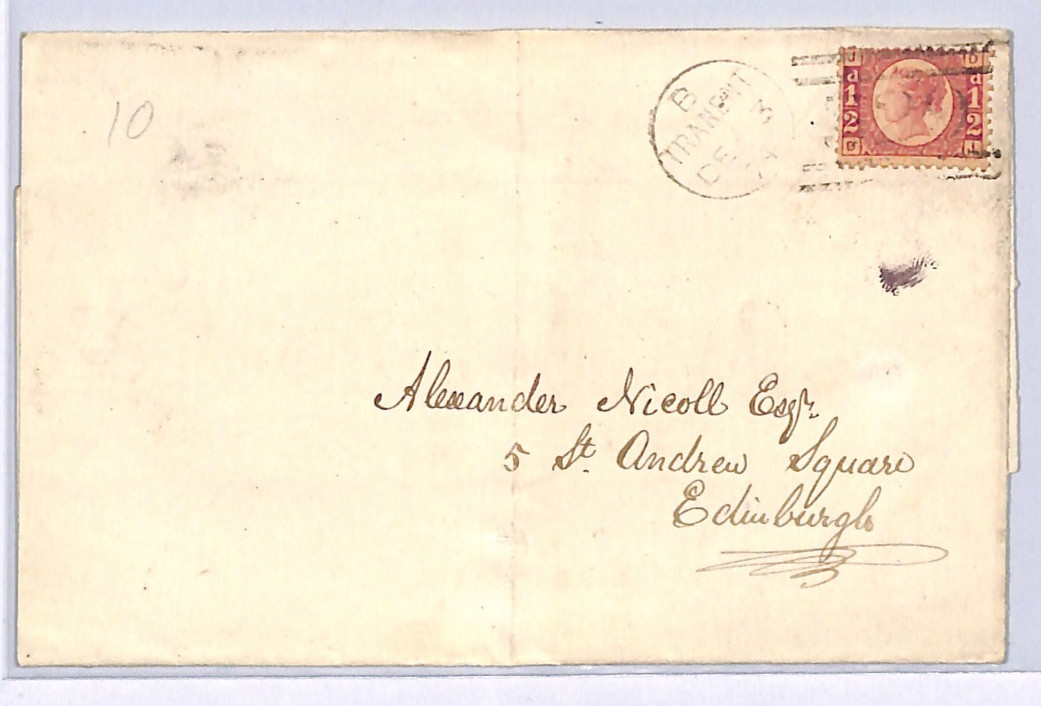 10
B
TRANENT
DE 3
74
J D
d 1/2 d 1/2
D J
Alexander Nicoll Esqr.
5 St. Andrew Square
Edinburgh